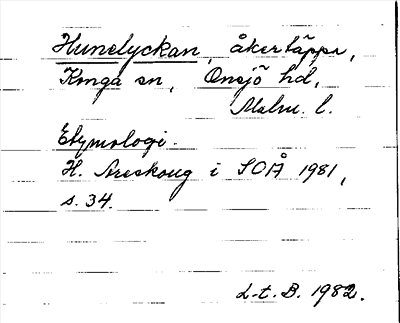 Hunelyckan, åkertäppa,
Konga sn, Onsjö hd,
Malm. l.
Etymologi.
H. Areskoug i SOÅ 1981,
s. 34.
L-t. B. 1982.